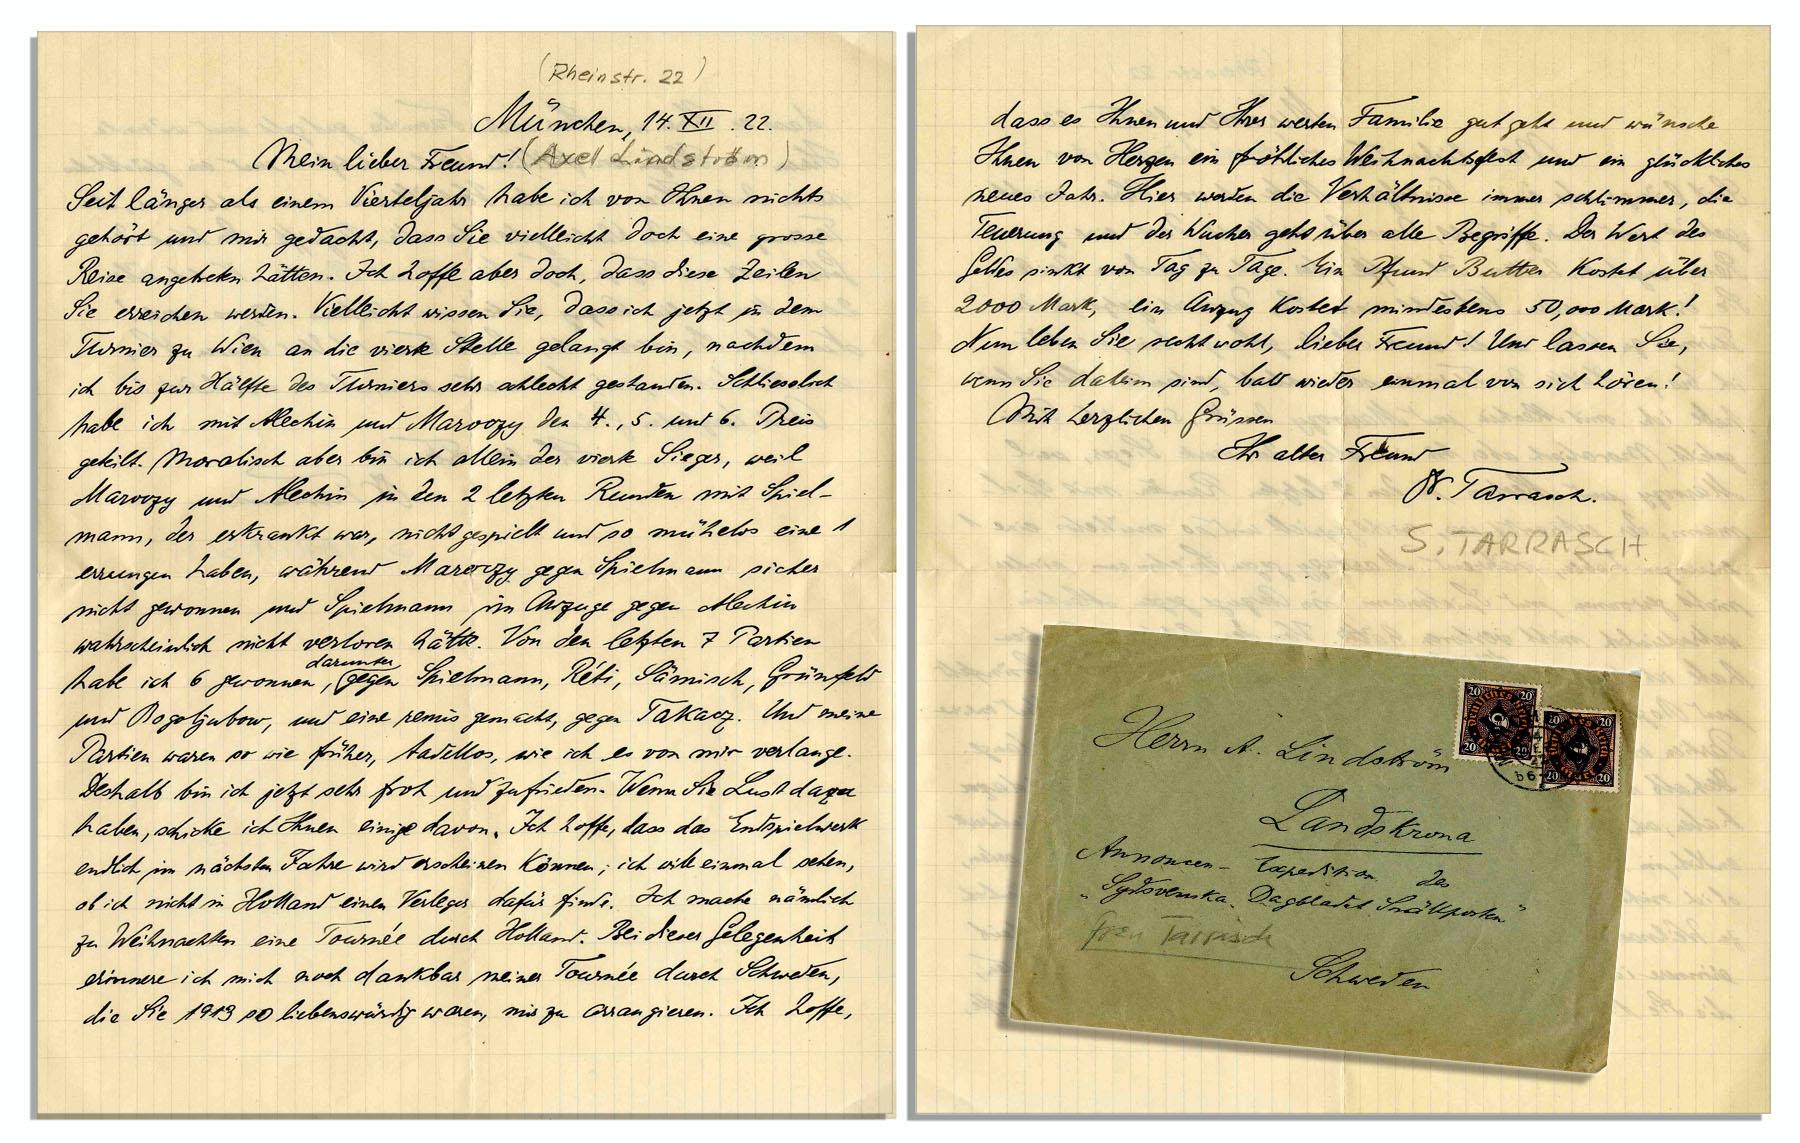 (Rheinstr. 22)
München, 14. XII. 22.
Mein lieber Freund! (Axel Lindström)
Seit länger als einem Vierteljahr habe ich von Ihnen nichts
gehört und mir gedacht, dass Sie vielleicht doch eine grosse
Reise angetreten hätten. Ich hoffe aber doch, dass diese Zeilen
Sie erreichen werden. Vielleicht wissen Sie, dass ich jetzt in dem
Turnier zu Wien an die vierte Stelle gelangt bin, nachdem
ich bis zur Hälfte des Turniers sehr schlecht gestanden. Schliesslich
habe ich mit Alechin und Maroczy den 4., 5. und 6. Preis
geteilt. Moralisch aber bin ich allein der vierte Sieger, weil
Maroczy und Alechin in den 2 letzten Runden mit Spiel-
mann, der erkrankt war, nicht gespielt und so mühelos eine 1
errungen haben, während Maroczy gegen Spielmann sicher
nicht gewonnen und Spielmann im Anzuge gegen Alechin
wahrscheinlich nicht verloren hätte. Von den letzten 7 Partien
habe ich 6 gewonnen, darunter gegen Spielmann, Réti, Sämisch, Grünfeld
und Bogoljubow, und eine remis gemacht, gegen Takacz. Und meine
Partien waren so wie früher, tadellos, wie ich es von mir verlange.
Deshalb bin ich jetzt sehr froh und zufrieden. Wenn Sie Lust dazu
haben, schicke ich Ihnen einige davon. Ich hoffe, dass das Endspielwerk
endlich im nächsten Jahre wird erscheinen können; ich will einmal sehen,
ob ich nicht in Holland einen Verleger dafür finde. Ich mache nämlich
zu Weihnachten eine Tournée durch Holland. Bei dieser Gelegenheit
erinnere ich mich noch dankbar meiner Tournée durch Schweden,
die Sie 1913 so liebenswürdig waren, mir zu arrangieren. Ich hoffe,
dass es Ihnen und Ihrer werten Familie gut geht und wünsche
Ihnen von Herzen ein fröhliches Weihnachtsfest und ein glückliches
neues Jahr. Hier werden die Verhältnisse immer schlimmer, die
Teuerung und der Wucher geht über alle Begriffe. Der Wert des
Geldes sinkt von Tag zu Tage. Ein Pfund Butter kostet über
2000 Mark, ein Anzug kostet mindestens 50,000 Mark!
Nun leben Sie recht wohl, lieber Freund! Und lassen Sie,
wenn Sie daheim sind, bald wieder einmal von sich hören!
Mit herzlichen Grüssen
Ihr alter Freund
Dr. Tarrasch.
S. TARRASCH
Herrn A. Lindström
Landskrona
Annoncen-Expedition des
"Sydsvenska Dagbladet Snällposten"
från Tarrasch
Schweden
20 20
Deutsches Reich
20 20
20 20
20 20